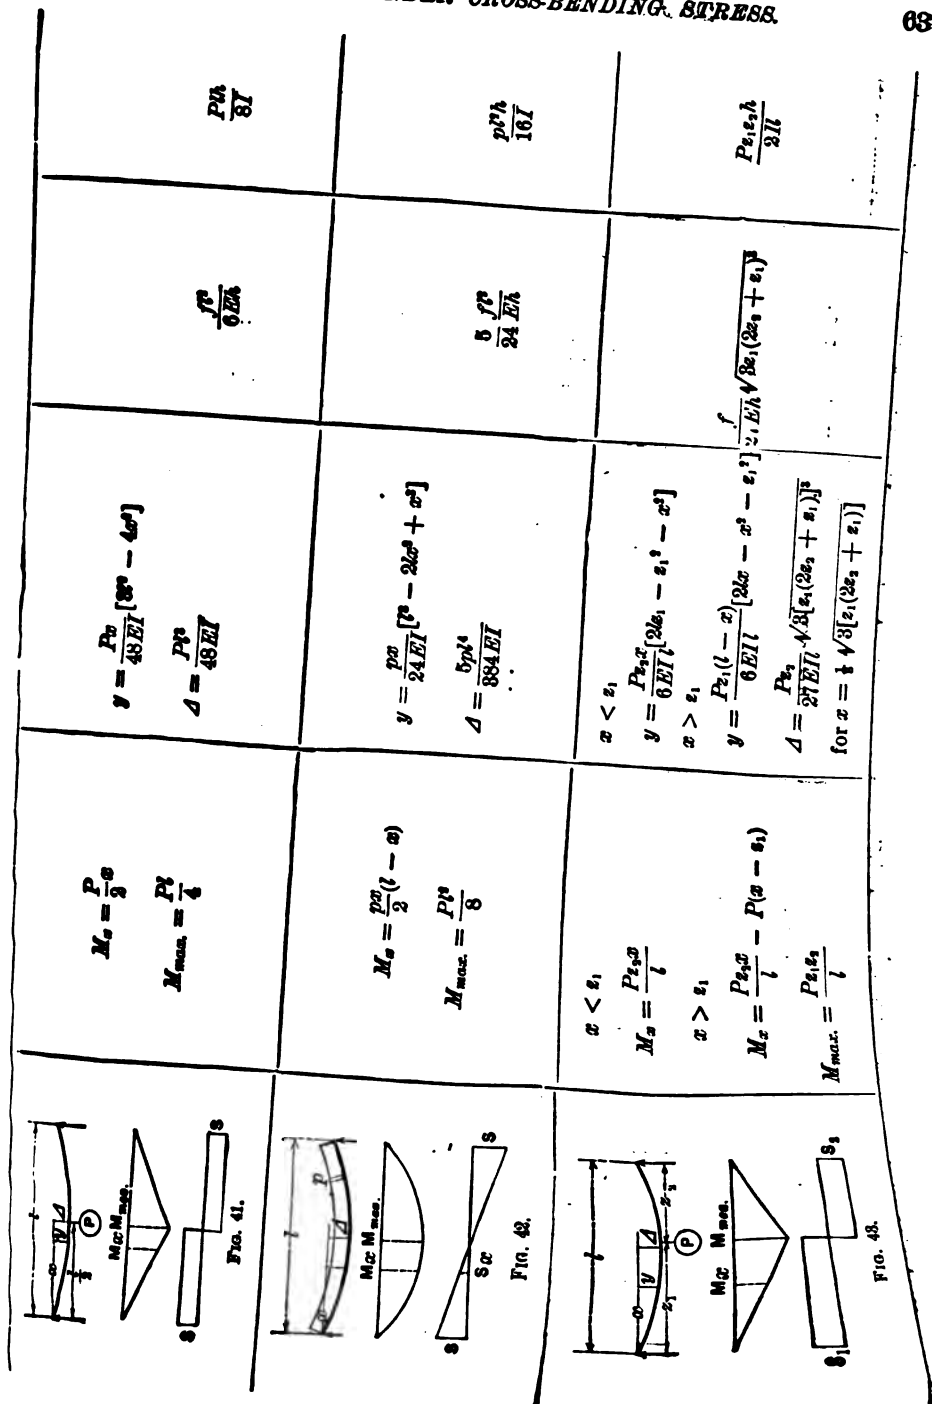 UNDER CROSS-BENDING STRESS.
63
FIG. 41.
M_x = \frac{P}{2}x
M_{max.} = \frac{Pl}{4}
y = \frac{Px}{48EI}[3l² - 4x²]
Δ = \frac{Pl³}{48EI}
\frac{fl²}{6Eh}
\frac{Plh}{8I}
FIG. 42.
M_x = \frac{px}{2}(l - x)
M_{max.} = \frac{Pl²}{8}
y = \frac{px}{24EI}[l³ - 2lx² + x³]
Δ = \frac{5pl⁴}{384EI}
\frac{5}{24} \frac{fl²}{Eh}
\frac{pl²h}{16I}
FIG. 43.
x < z₁
M_x = \frac{Pz₂x}{l}
x > z₁
M_x = \frac{Pz₂x}{l} - P(x - z₁)
M_{max.} = \frac{Pz₁z₂}{l}
x < z₁
y = \frac{Pz₂x}{6EIl}[2lz₁ - z₁² - x²]
x > z₁
y = \frac{Pz₁(l - x)}{6EIl}[2lx - x² - z₁²]
Δ = \frac{Pz₂}{27EIl}\sqrt{3[z₁(2z₂ + z₁)]³}
for x = ⅓ \sqrt{3[z₁(2z₂ + z₁)]}
\sqrt{3z₁(2z₂ + z₁)³}
\frac{Pz₁z₂h}{2Il}